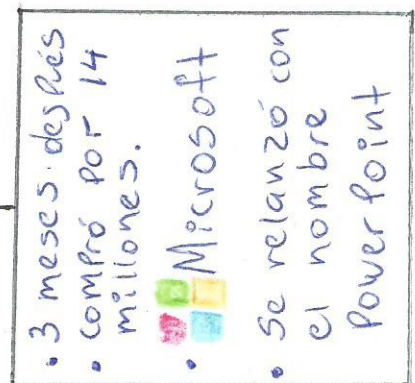 • 3 meses después
• compró por 14
millones.
• Microsoft
• Se relanzó con
el nombre
PowerPoint